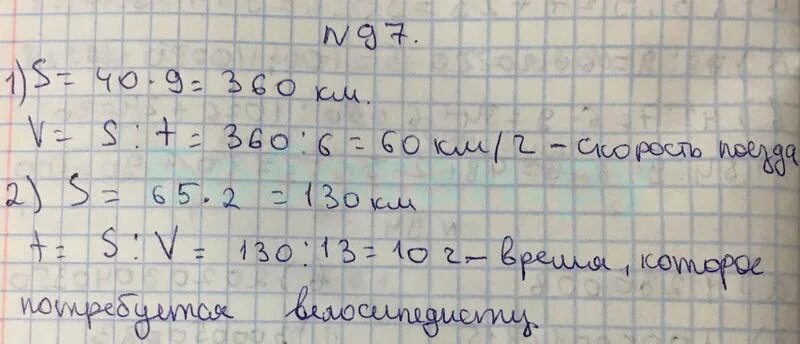 N97.
1) S = 40 · 9 = 360 км.
V = S : t = 360 : 6 = 60 км/ч – скорость поезда
2) S = 65 · 2 = 130 км
t = S : V = 130 : 13 = 10 ч – время, которое
потребуется велосипедисту.